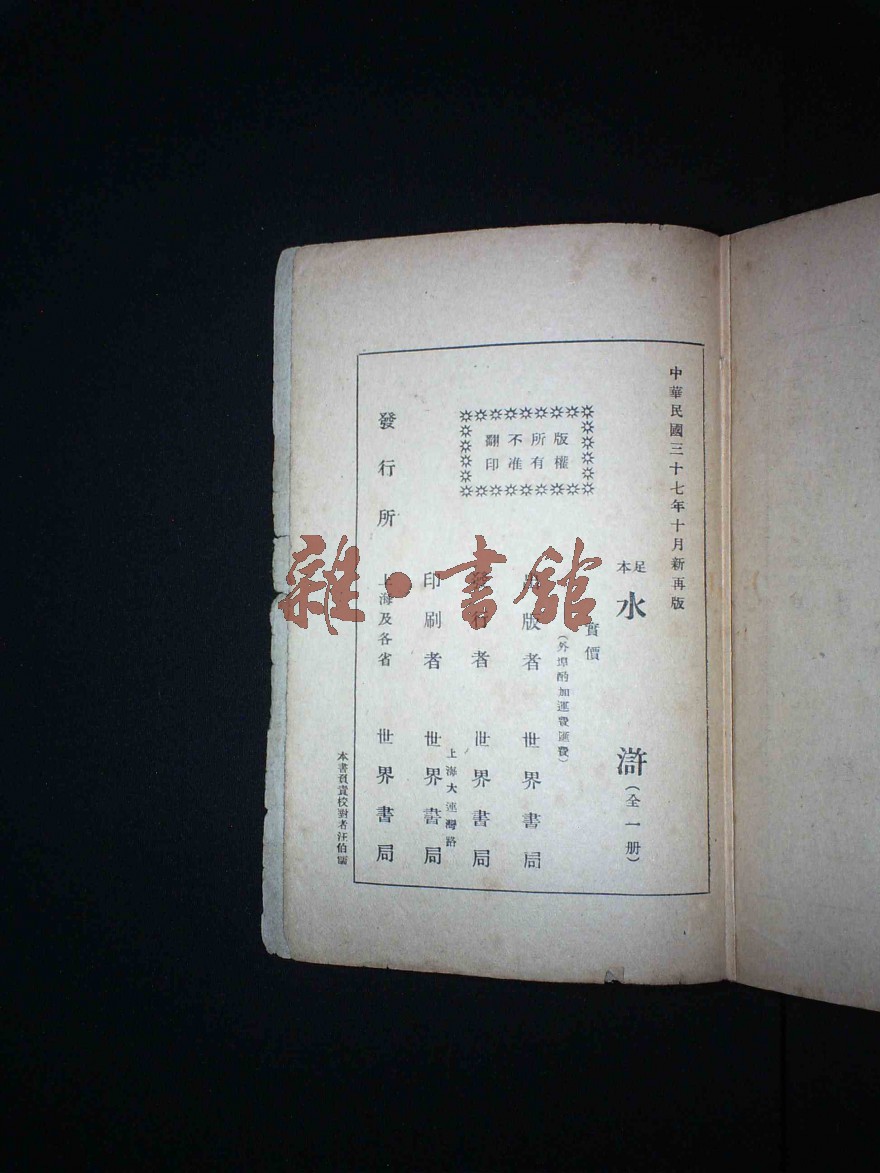 中華民國三十七年十月新再版
足本水滸(全一册)
實價
(外埠酌加運費匯費)
版權所有不准翻印
出版者 世界書局
發行者 世界書局
上海大連灣路
印刷者 世界書局
發行所 上海及各省 世界書局
本書負責校對者汪伯
雜·書館